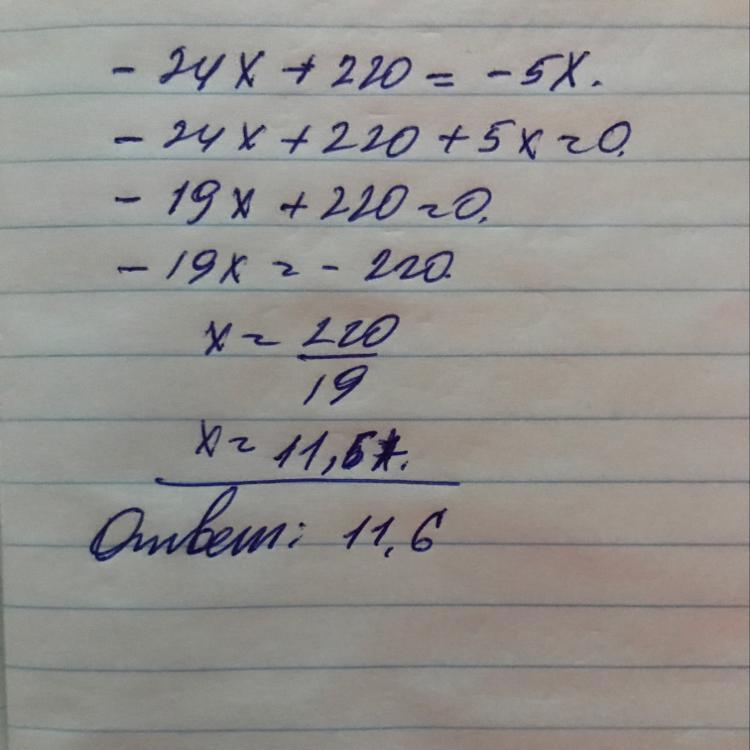 - 24x + 220 = -5x.
- 24x + 220 + 5x = 0.
- 19x + 220 = 0.
- 19x = - 220.
x = 220
19
x =
Ответ: 11,6